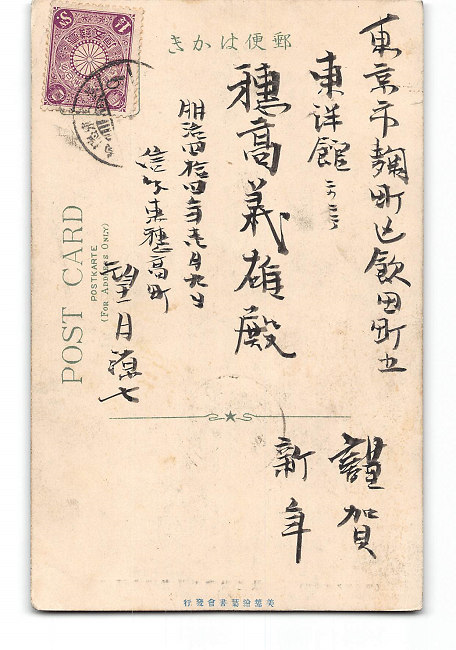 きかは便郵
東京市麹町区飯田町五
東洋館ニテ
穂高義雄殿
明治四拾四年壱月九日
信州東穂高町
望月源七
POST CARD
POSTKARTE
(FOR ADDRESS ONLY)
謹賀
新年
行發會書葉繪